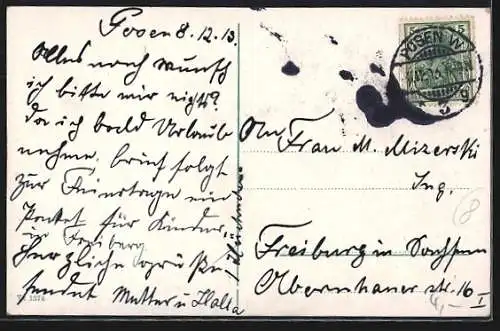 Posen 8.12.13.
Alles noch wünsch
ich bitte mir nicht?
da ich bald Urlaub
nehme. brief folgt
zur Feiertage ein
Paket für Kinder
in Freiberg
herzliche grüße
sendet Mutter u
An
Frau M. Mizerski
Ing.
Freiburg in Sachsen
str. 16 I
POSEN W.
5
8